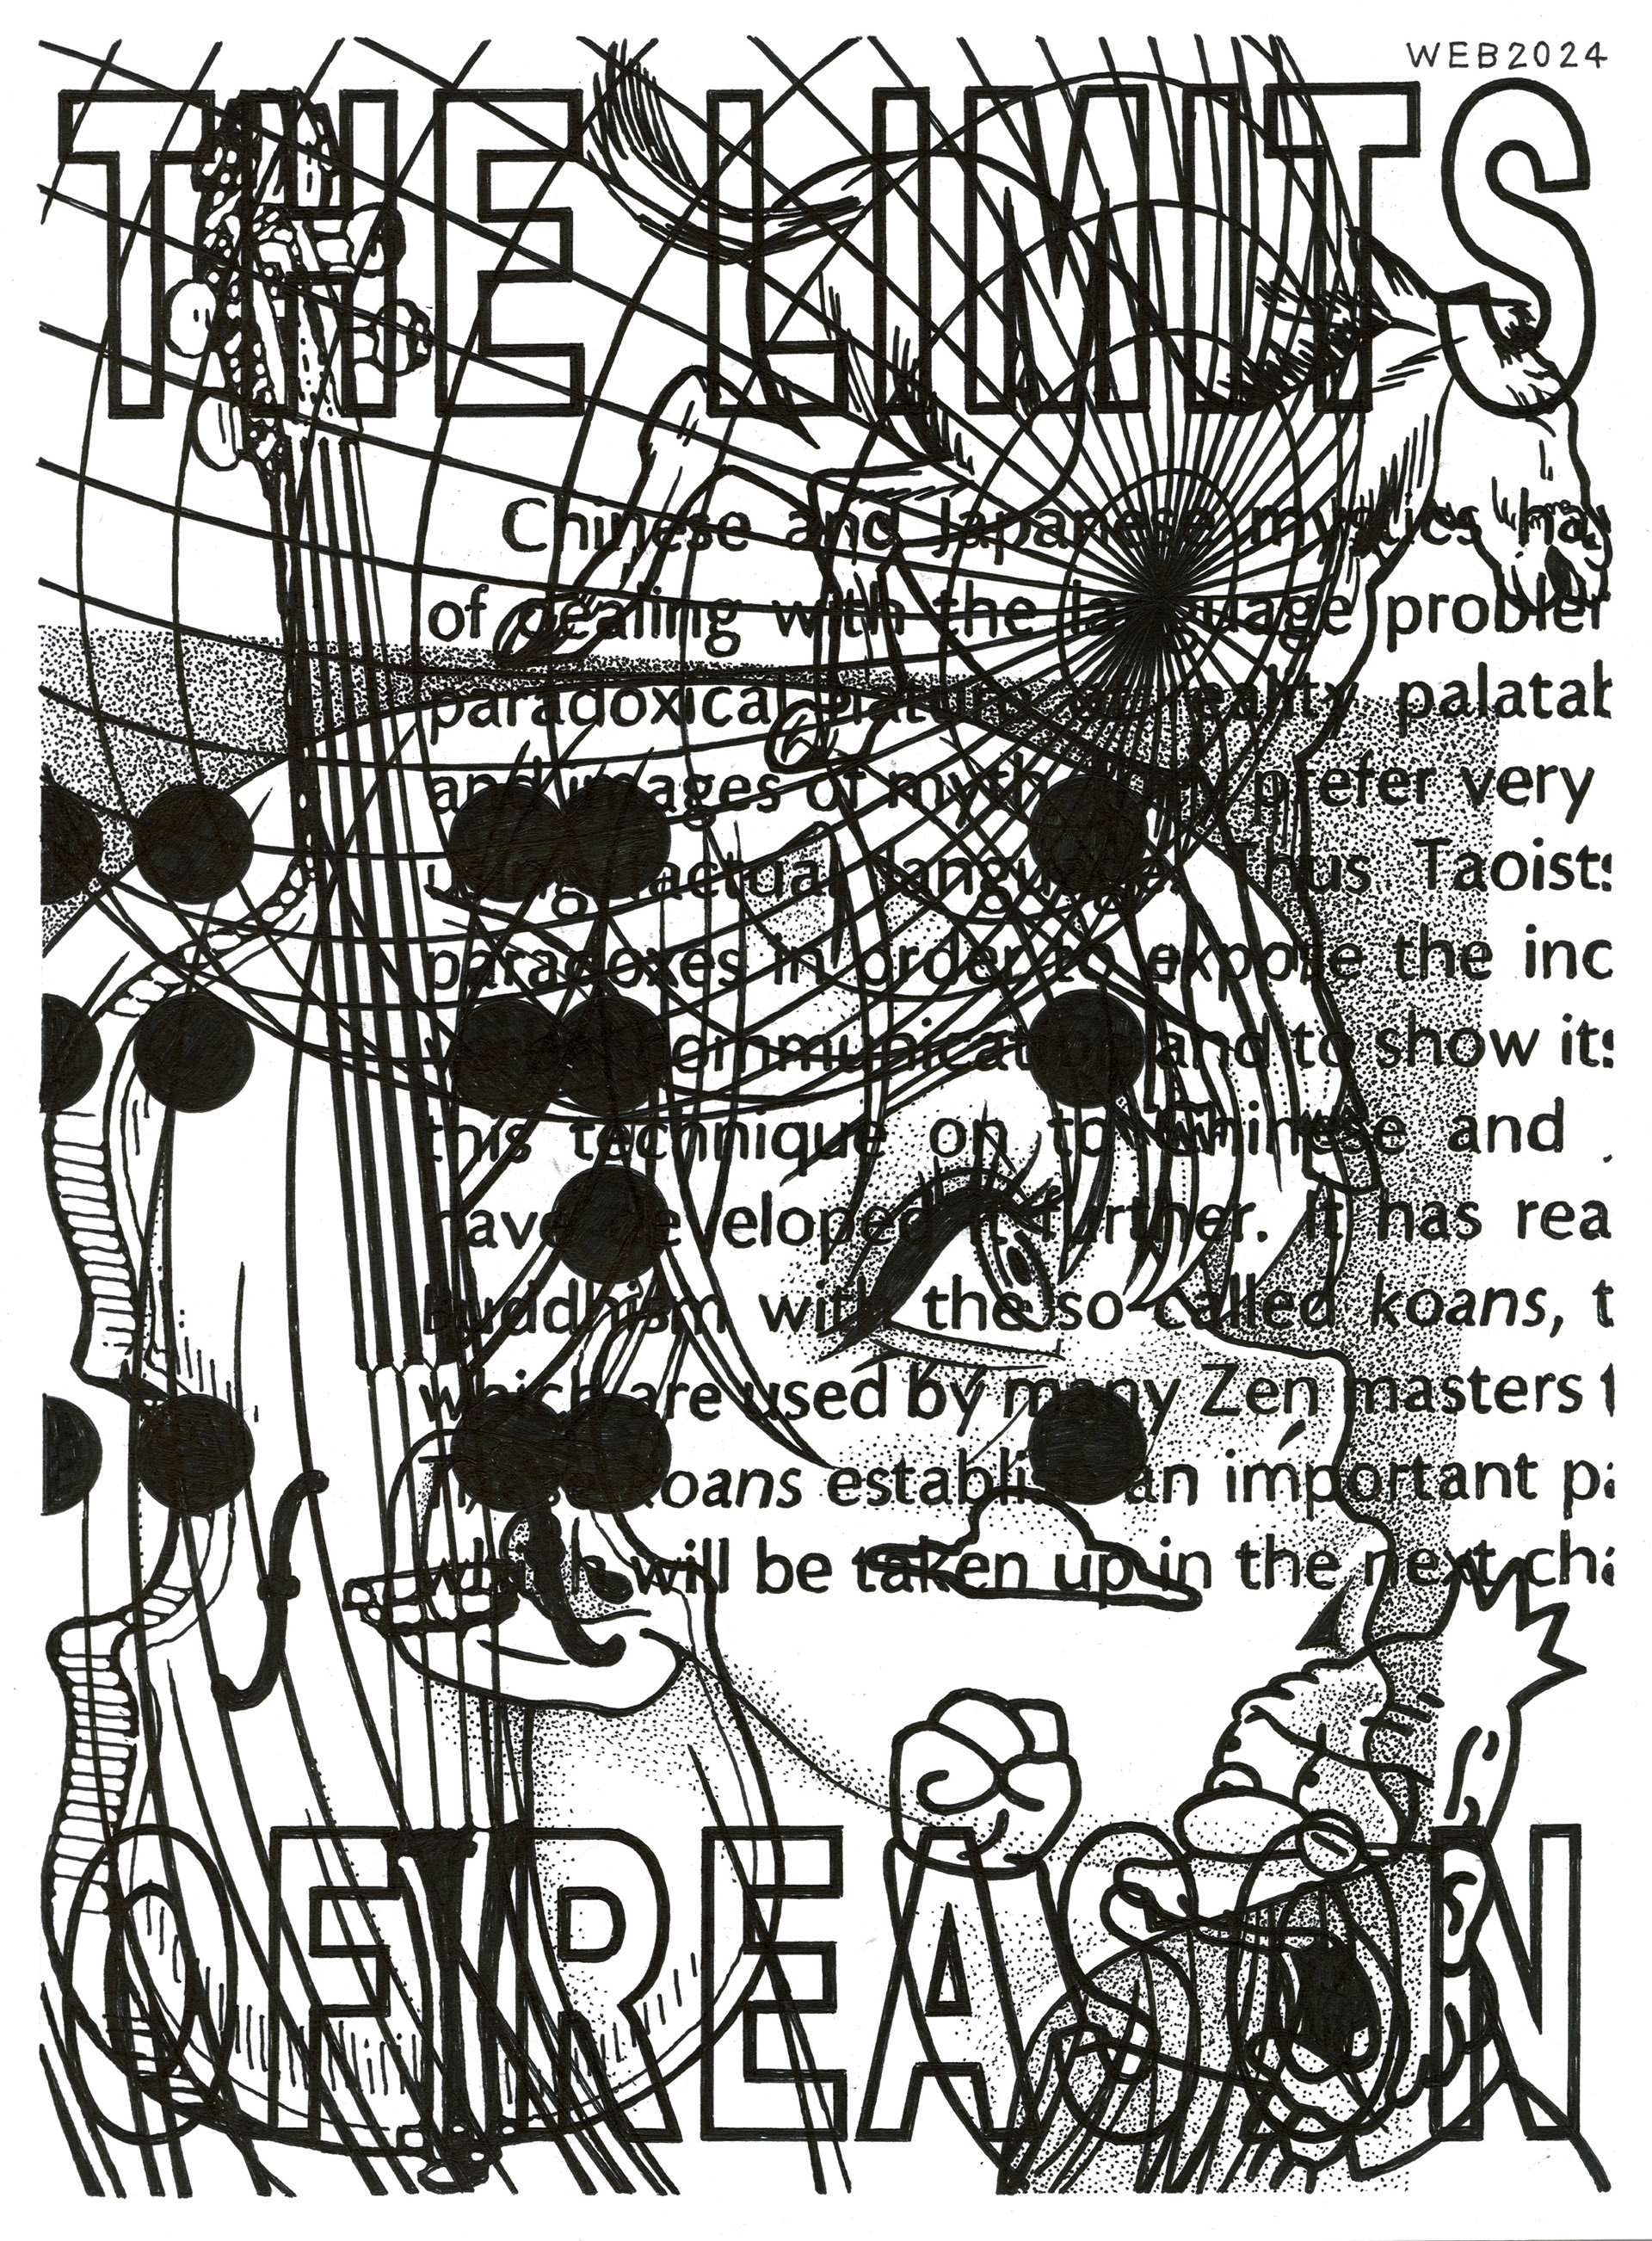 WEB2024
THE LIMITS
Chinese and Japanese mystics ha
of dealing with the language probler
paradoxical nature of reality palatab
and images of myth, they prefer very
using factual language. Thus Taoists
paradoxes in order to expose the inc
verbal communication and to show its
this technique on to Chinese and
have developed it further. It has rea
Buddhism with the so called koans, t
which are used by many Zen masters t
These koans establish an important pa
which will be taken up in the next cha
OF REASON